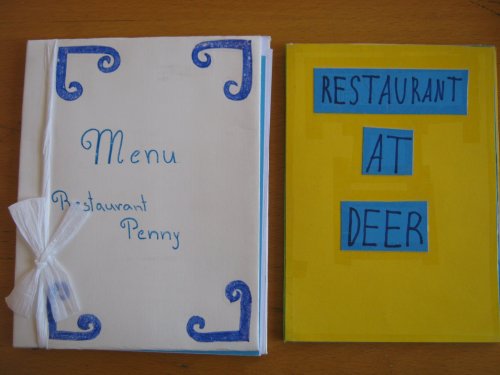 Menu
Restaurant
Penny
RESTAURANT
AT
DEER